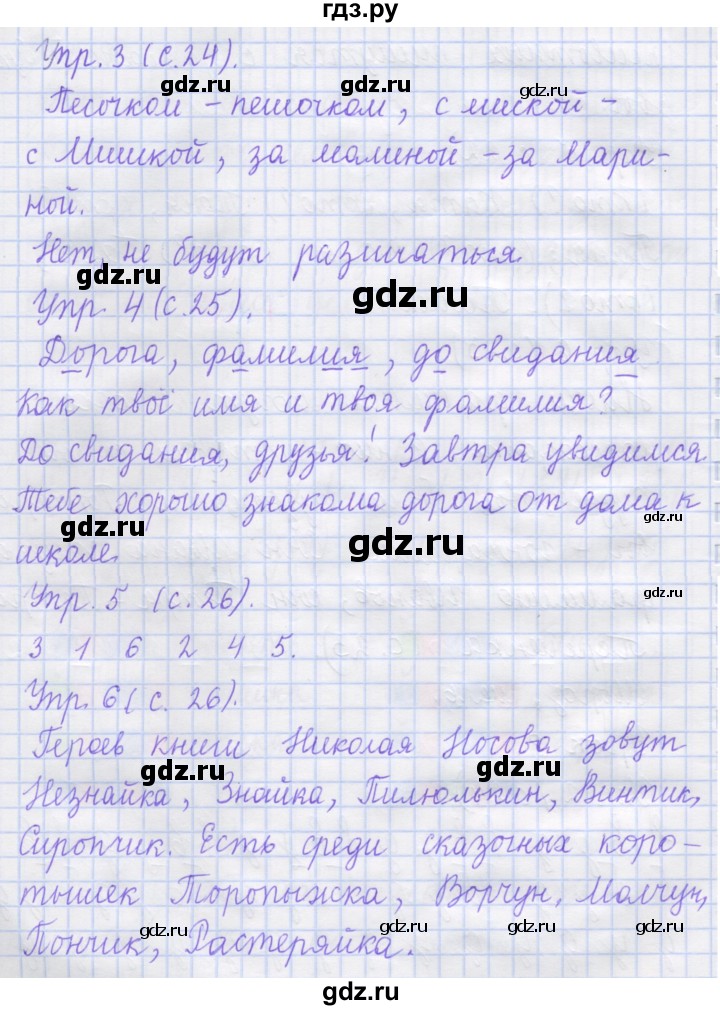 гдз.ру
Упр. 3 (с.24).
gdz.ru
gdz.ru
Песочком - пешочком, с миской -
с Мишкой, за малиной - за Мари-
ной.
Нет, не будут различаться.
gdz.ru
gdz.ru
Упр. 4 (с.25).
Дорога, фамилия, до свидания.
Как твоё имя и твоя фамилия?
До свидания, друзья! Завтра увидимся.
Тебе хорошо знакома дорога от дома к
gdz.ru
gdz.ru
gdz.ru
школе.
Упр. 5 (с. 26).
gdz.ru
3 1 6 2 4 5.
Упр. 6 (с. 26).
Героев книги Николая Носова зовут
gdz.ru
gdz.ru
Незнайка, Знайка, Пилюлькин, Винтик,
Сиропчик. Есть среди сказочных коро-
тышек Торопыжка, Ворчун, Молчун,
gdz.ru
gdz.ru
gdz.ru
Пончик, Растеряйка.
gdz.ru